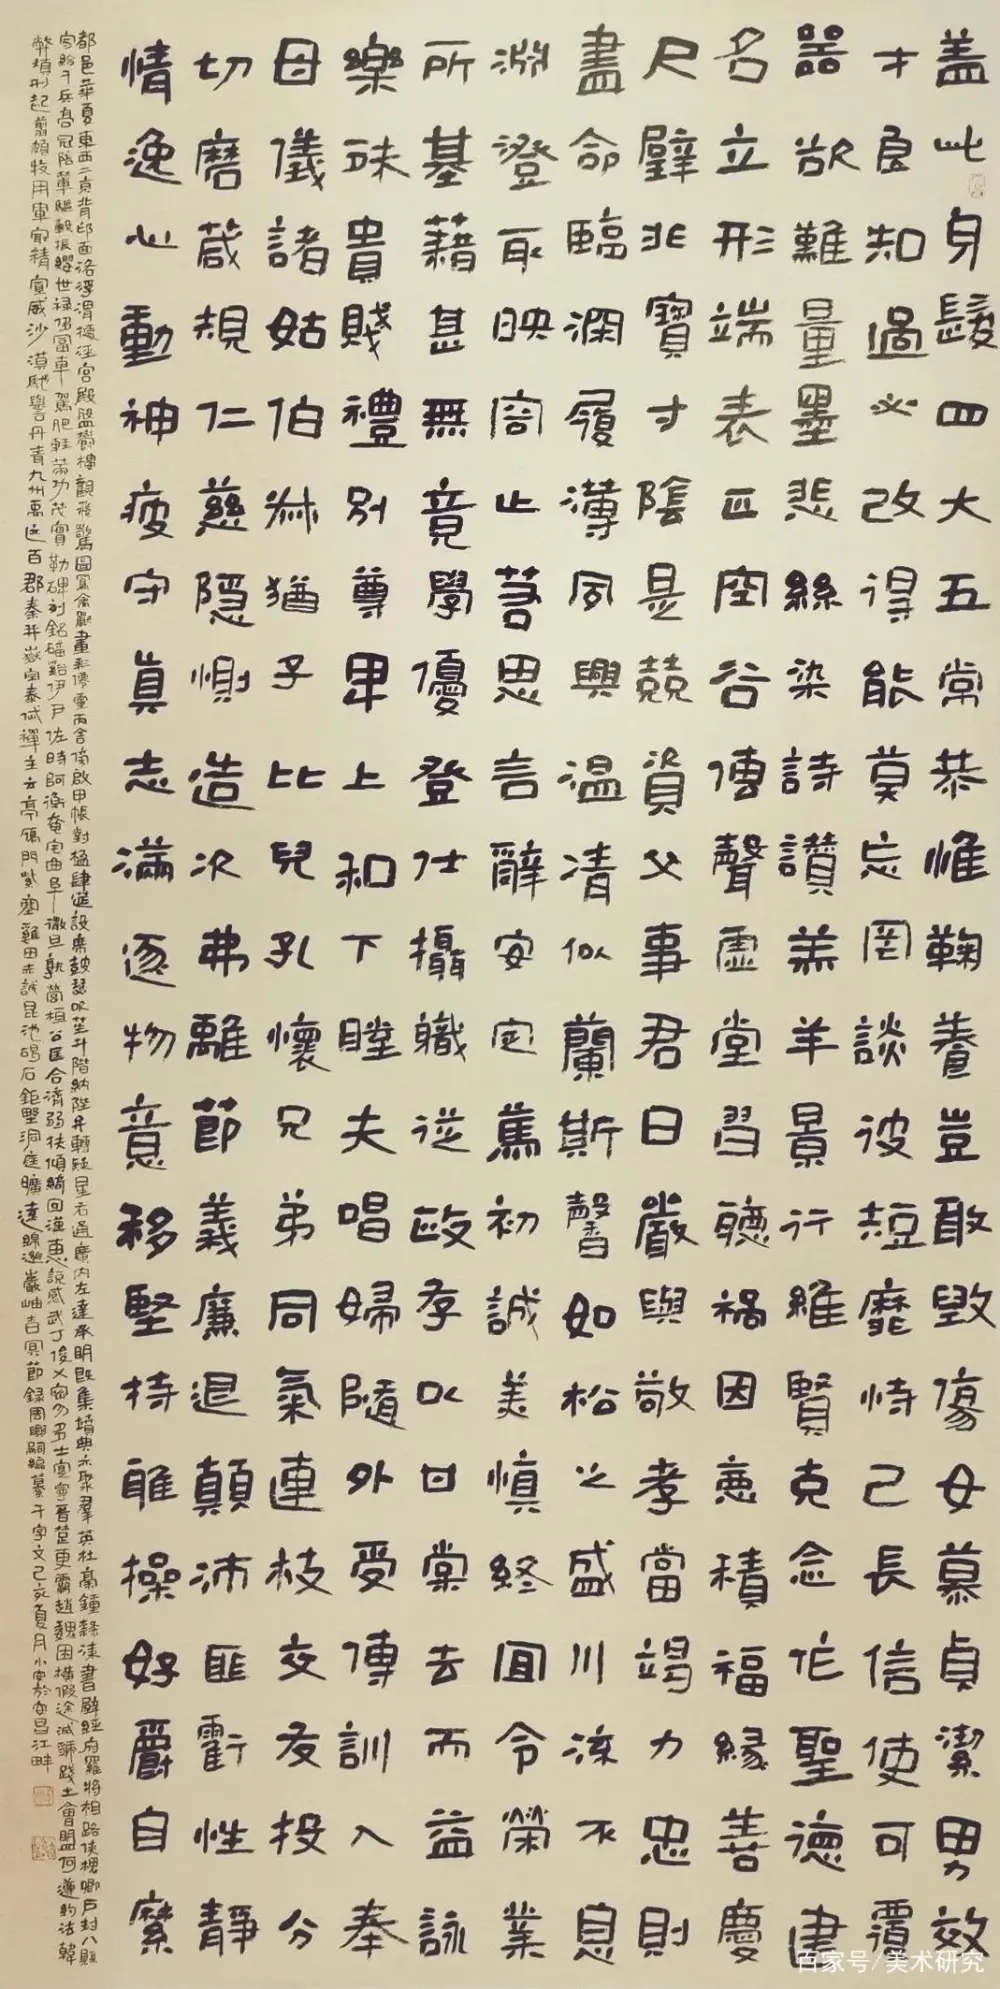 蓋此身髮四大五常恭惟鞠養豈敢毀傷女慕貞潔男效
才良知過必改得能莫忘罔談彼短靡恃己長信使可覆
器欲難量墨悲絲染詩讚羔羊景行維賢克念作聖德建
名立形端表正空谷傳聲虛堂習聽禍因惡積福緣善慶
尺璧非寶寸陰是競資父事君曰嚴與敬孝當竭力忠則
盡命臨深履薄夙興温凊似蘭斯馨如松之盛川流不息
淵澄取映容止若思言辭安定篤初誠美慎終宜令榮業
所基藉甚無竟學優登仕攝職從政存以甘棠去而益詠
樂殊貴賤禮別尊卑上和下睦夫唱婦隨外受傅訓入奉
母儀諸姑伯叔猶子比兒孔懷兄弟同氣連枝交友投分
切磨箴規仁慈隱惻造次弗離節義廉退顛沛匪虧性靜
情逸心動神疲守真志滿逐物意移堅持雅操好爵自縻
都邑華夏東西二京背邙面洛浮渭據涇宮殿盤鬱樓觀飛驚圖寫禽獸畫彩僊靈丙舍傍啟甲帳對楹肆筵設席鼓瑟吹笙升階納陛弁轉疑星右通廣內左達承明既集墳典亦聚羣英杜稾鍾隸漆書壁經府羅將相路俠槐卿戶封八縣
家給千兵高冠陪輦驅轂振纓世祿侈富車駕肥輕策功茂實勒碑刻銘磻谿伊尹佐時阿衡奄宅曲阜微旦孰營桓公匡合濟弱扶傾綺回漢惠說感武丁俊乂密勿多士寔寧晉楚更霸趙魏困橫假途滅虢踐土會盟何遵約法韓
弊煩刑起翦頗牧用軍最精宣威沙漠馳譽丹青九州禹迹百郡秦并嶽宗泰岱禪主云亭雁門紫塞雞田赤城昆池碣石鉅野洞庭曠遠綿邈巖岫杳冥節録周興嗣編纂千字文己亥夏月小安於安昌江畔
百家号/美术研究